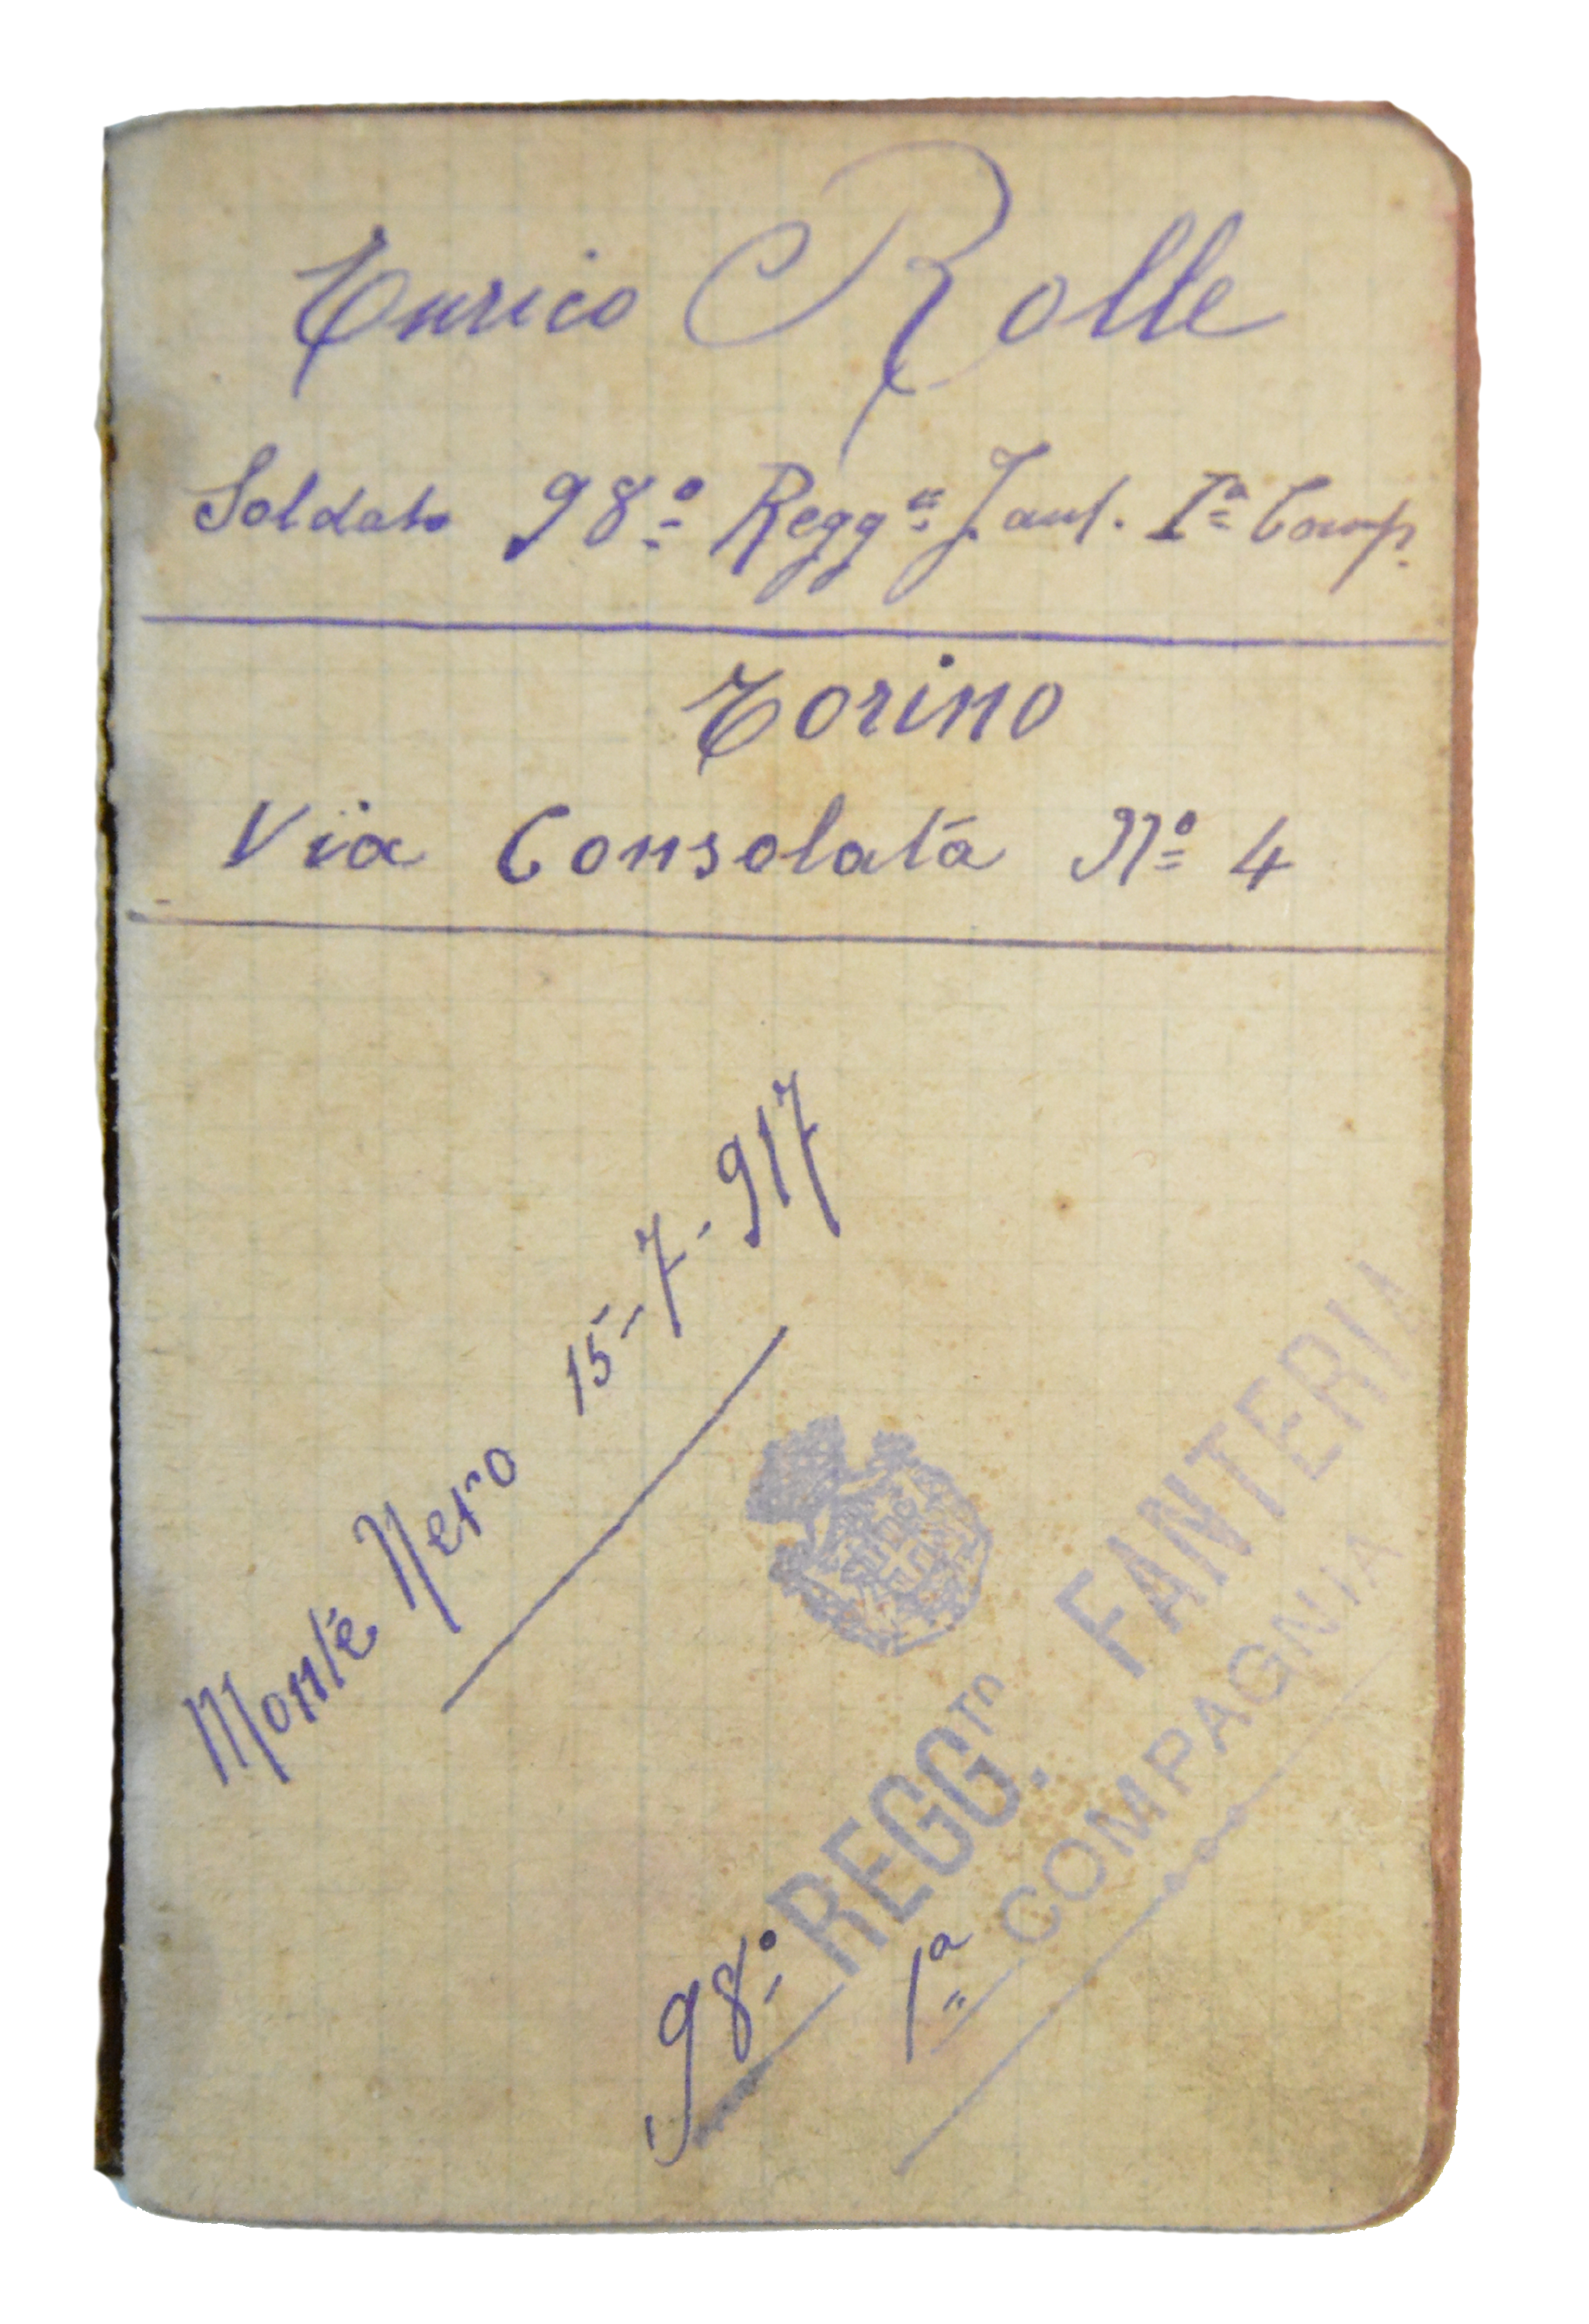 Enrico Rolle
Soldato 98º Reggº Fant. Iª Comp.
Torino
Via Consolata Nº 4
Monte Nero 15-7-917
98º REGGTO. FANTERIA
1ª COMPAGNIA